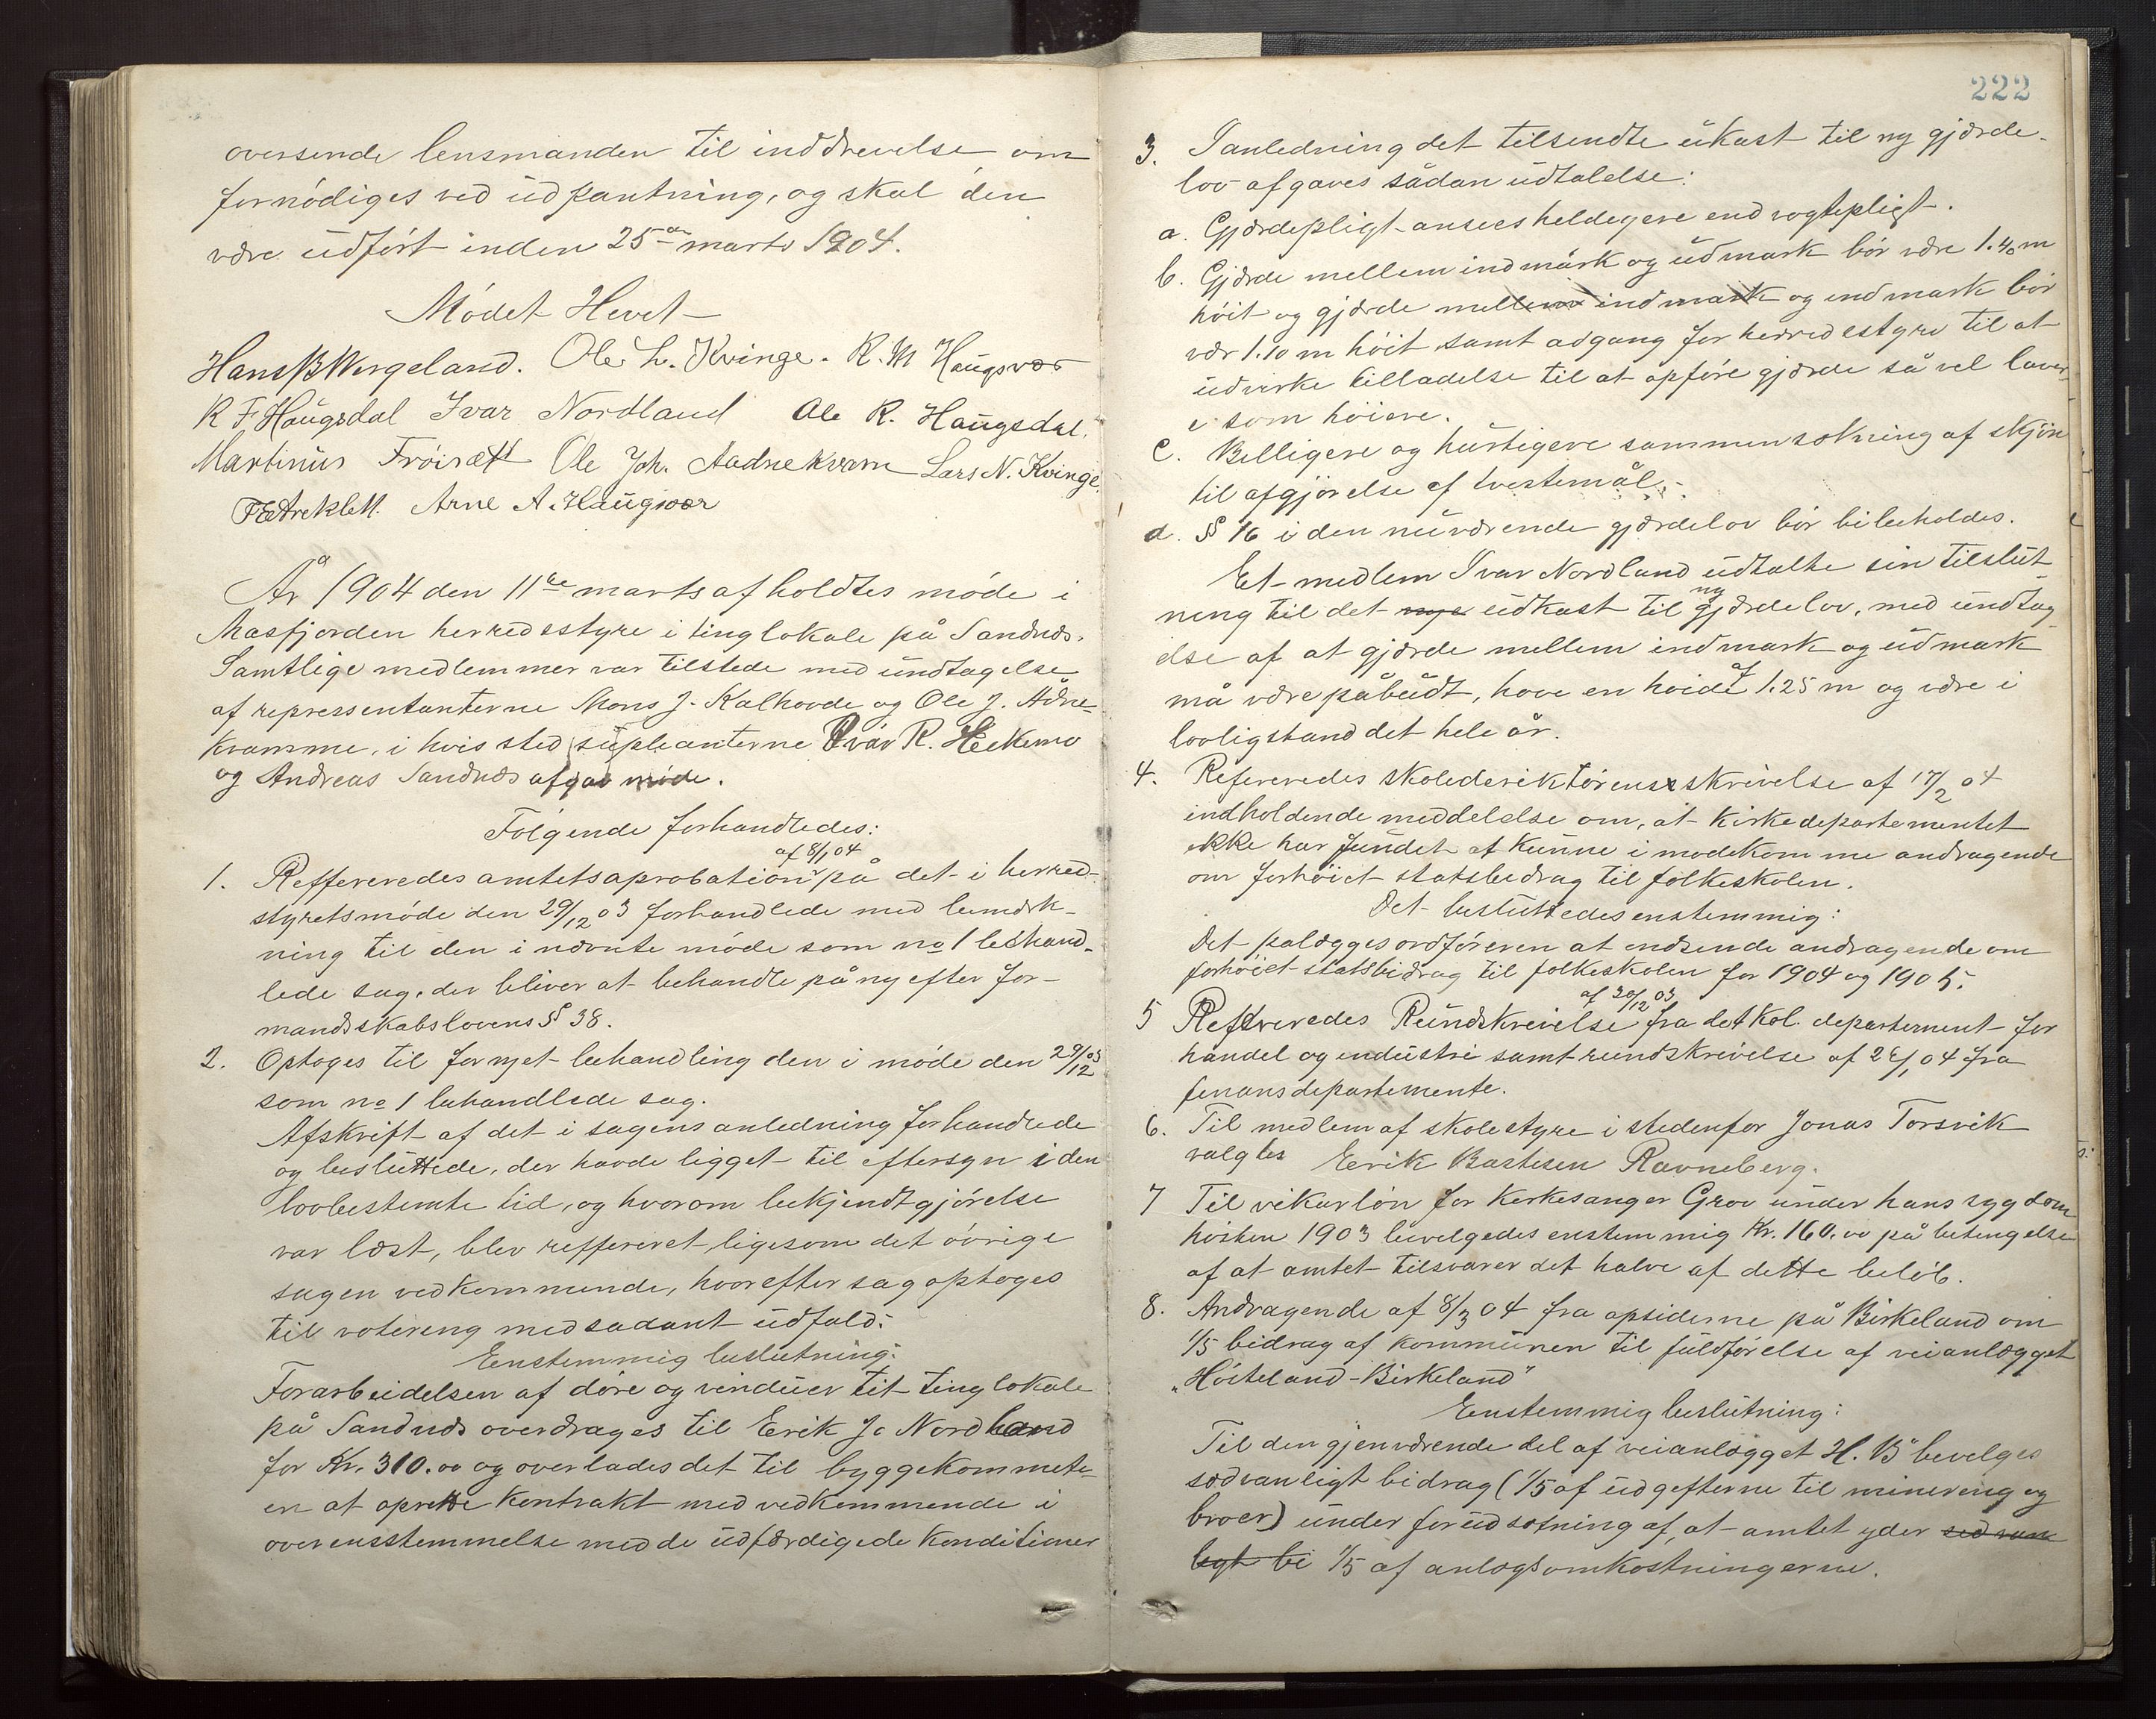 oversende lensmanden til inddrevelse om
fornødiges ved udpantning, og skal den
være udført inden 25de marts 1904.
Mødet Hevet
Hans B Wergeland. Ole L. Kvinge. R. M Haugsvær
R F Haugsdal Ivar Nordland Ole R. Haugsdal.
Martinus Frøiset Ole Joh. Aadnekvam Lars N. Kvinge.
Arne A. Haugsvær
År 1904 den 11te marts afholdtes møde i
Masfjorden herredsstyre i tinglokale på Sandnæs.
Samtlige medlemmer var tilstede med undtagelse
af repressentanterne Mons J. Kalhovde og Ole J. Ådne-
kvamme, i hvis sted supleanterne Ivar R. Hekemo
og Andreas Sandnæs afgav møde.
Følgende forhandledes:
1. Reffereredes amtetsaprobation af 8/1 04 på det i herred-
styretsmøde den 29/12 03 forhandlede med bemerk-
ning til den i nævnte møde som no 1 behand-
lede sag. der bliver at behandle på ny efter for-
mandsskabslovens § 38.
2. Optoges til fornyet behandling den i møde den 29/12 03
som no 1 behandlede sag.
Afskrift af det i sagens anledning forhandlede
og besluttede, der havde ligget til eftersyn i den
lovbestemte tid, og hvorom bekjendtgjørelse
var læst, blev reffereret, ligesom det øvrige
sagen vedkommende, hvorefter sag optoges
til votering med sadant udfald:
Eenstemmig beslutning:
Forarbeidelsen af døre og vinduer til tinglokale
på Sandnæs overdrages til Erik J. Nordland
for Kr. 310.00 og overlades det til byggekommete-
en at oprette kontrakt med vedkommende i
overensstemmelse med de udfærdigede konditioner
222
3. I anledning det tilsendte utkast til ny gjærde-
lov afgaves sådan udtalelse:
a. Gjærdepligt ansees heldegere end vogtepligt.
b. Gjærde mellem indmark og udmark bør være 1.40 m
høit og gjærde mellem indmark og indmark bør
vær 1.10 m høit samt adgang for herredsstyre til at
udvirke tilladelse til at opføre gjærde så vel laver-
e som høiere.
c. Billigere og hurtigere sammensetning af skjøn
til afgjørelse af tvestemål.
d. § 16 i den nuværende gjærdelov bør bibeholdes.
Et medlem Ivar Nordland udtalte sin tilslut-
ning til det nye udkast til ny gjærdelov, med undtag-
else af at gjærde mellem indmark og udmark
må være påbudt, have en høide af 1.25 m og være i
lovligstand det hele år.
4. Refereredes skolederiktørens skrivelse af 17/2 04
indholdende meddelelse om, at kirkedepartementet
ikke har fundet at kunne imødekomme andragende
om forhøiet statsbedrag til folkeskolen.
Det besluttedes enstemmig:
Det palægges ordføreren at indsende andragende om
forhøiet statsbidrag til folkeskolen for 1904 og 1905.
5 Refereredes Rundskrivelse af 30/12 03 fra det Kol. departement for
handel og industri samt rundskrivelse af 28/1 04 fra
finansdepartemente.
6. Til medlem af skolestyre i stedenfor Jonas Torsvik
valgtes Eerik Bastesen Ravneberg.
7 Til vikarløn for kerkesanger Grov under hans sygdom
høsten 1903 bevelgedes enstemmig Kr. 160.00 på betengelse
af at amtet tilsvarer det halve af dette beløb.
8. Andragende af 8/3 04 fra opsiderne på Birkeland om
1/5 bidrag af kommunen til fuldførelse af veianlægget
„Høiteland-Birkeland"
Eenstemmig beslutning:
Til den gjenværende del af veianlægget H. B" bevelges
sædvanligt bidrag (1/5 af udgefterne til minering og
broer) under forudsætning af, at amtet yder sædvan
ligt bi 1/5 af anlægsomkostningerne.